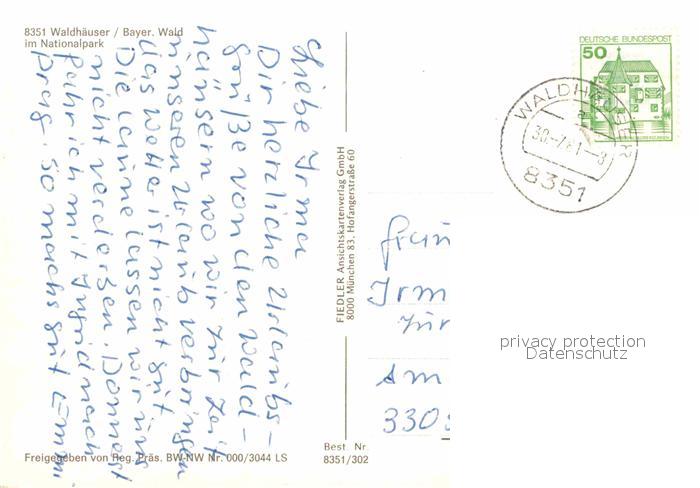 8351 Waldhäuser / Bayer. Wald
im Nationalpark
Liebe Irma
Dir herzliche Urlaubs-
grüße von den Wald-
häusern wo wir zur Zeit
unseren Urlaub verbringen
das Wetter ist nicht gut
Die Laune lassen wir uns
nicht verderben. Donnerst
fahr ich mit Ingrid nach
Prag. So machs gut Emmi
FIEDLER Ansichtskartenverlag GmbH
8000 München 83, Hofangerstraße 60
Freigegeben von Reg. Präs. BW-NW Nr. 000/3044 LS
Best. Nr.
8351/302
DEUTSCHE BUNDESPOST
50
WALDHÄUSER
30.-7.81-8
8351
Irm
Am
330
privacy protection
Datenschutz